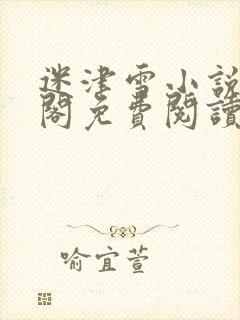 迷津雪小說
閣免費閱讀
喻宜萱